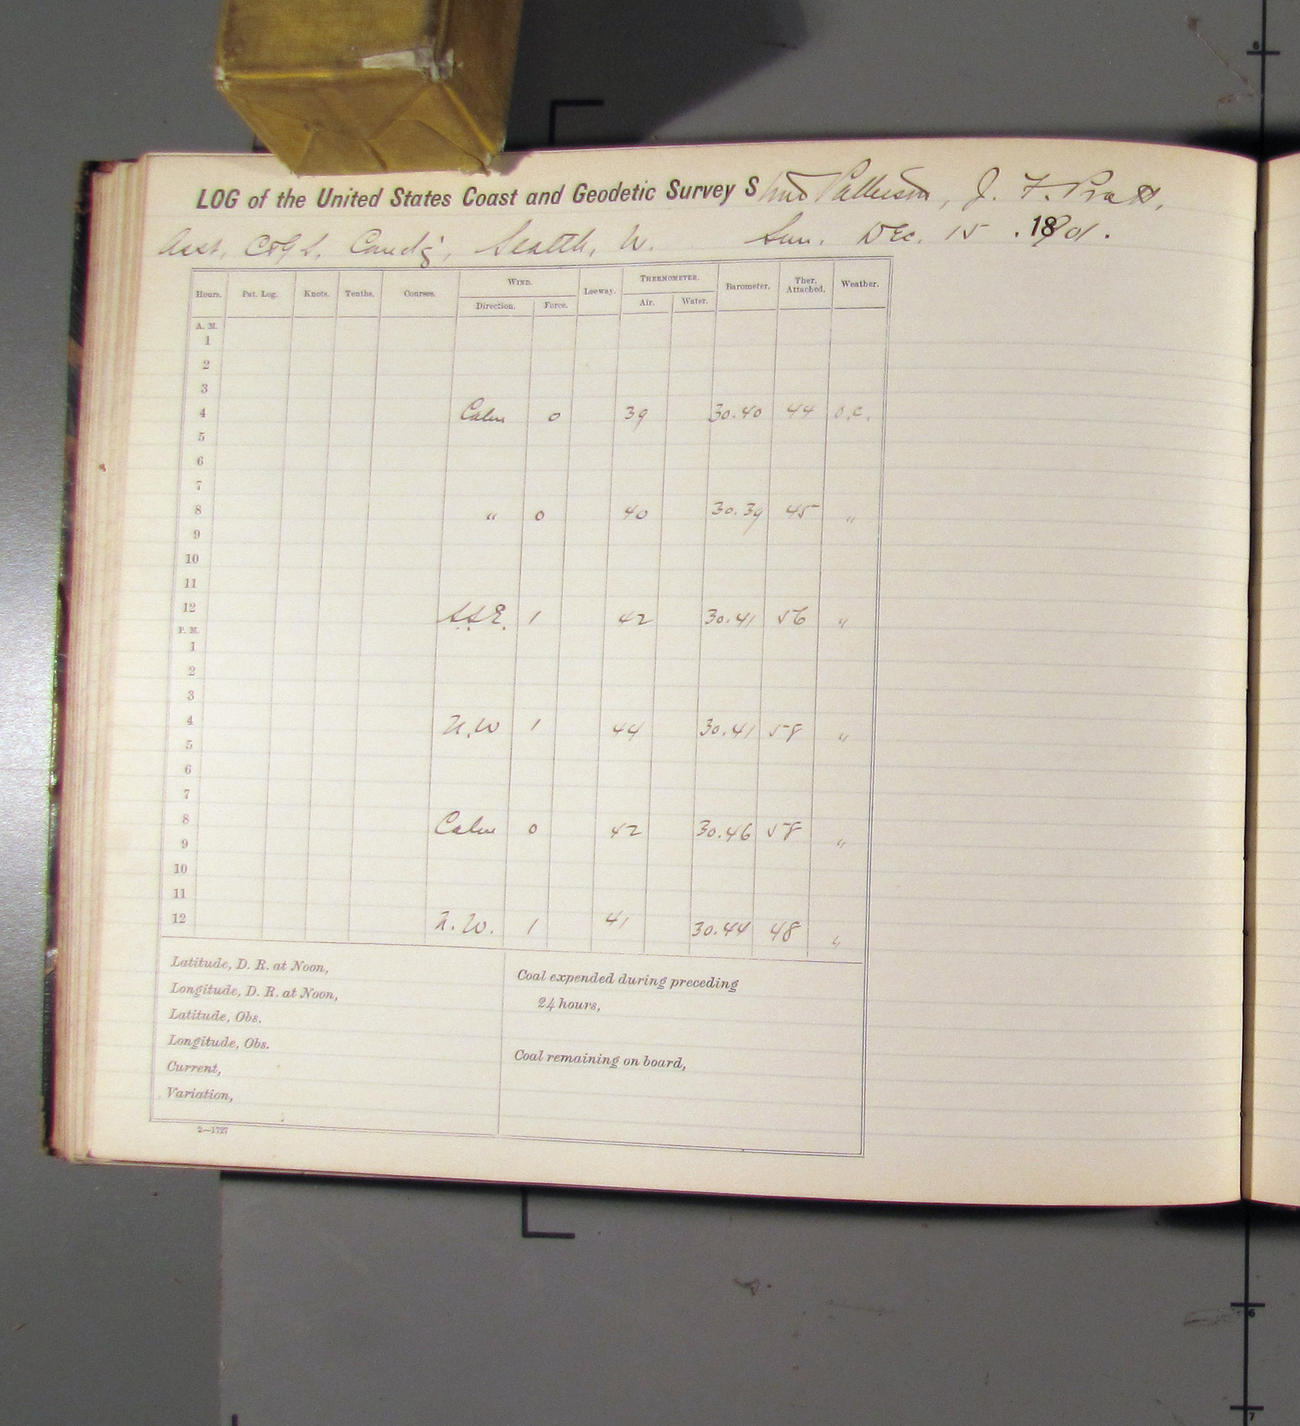 LOG of the United States Coast and Geodetic Survey Stmr Patterson, J. F. Pratt,
Asst. C&GS. Comd'g, Seattle, W. Sun. Dec. 15. 1901.
Hours. Pat. Log. Knots. Tenths. Courses. WIND. Leeway. THERMOMETER. Barometer. Ther. Attached. Weather.
Direction. Force. Air. Water.
A. M.
1
2
3
4 Calm 0 39 30.40 44 O.C.
5
6
7
8 " 0 40 30.39 45 "
9
10
11
12 S.S.E. 1 42 30.41 56 "
P. M.
1
2
3
4 N.W 1 44 30.41 58 "
5
6
7
8 Calm 0 42 30.46 58 "
9
10
11
12 N.W. 1 41 30.44 48 "
Latitude, D. R. at Noon,
Longitude, D. R. at Noon,
Latitude, Obs.
Longitude, Obs.
Current,
Variation,
Coal expended during preceding
24 hours,
Coal remaining on board,
2—1727
6
6
7